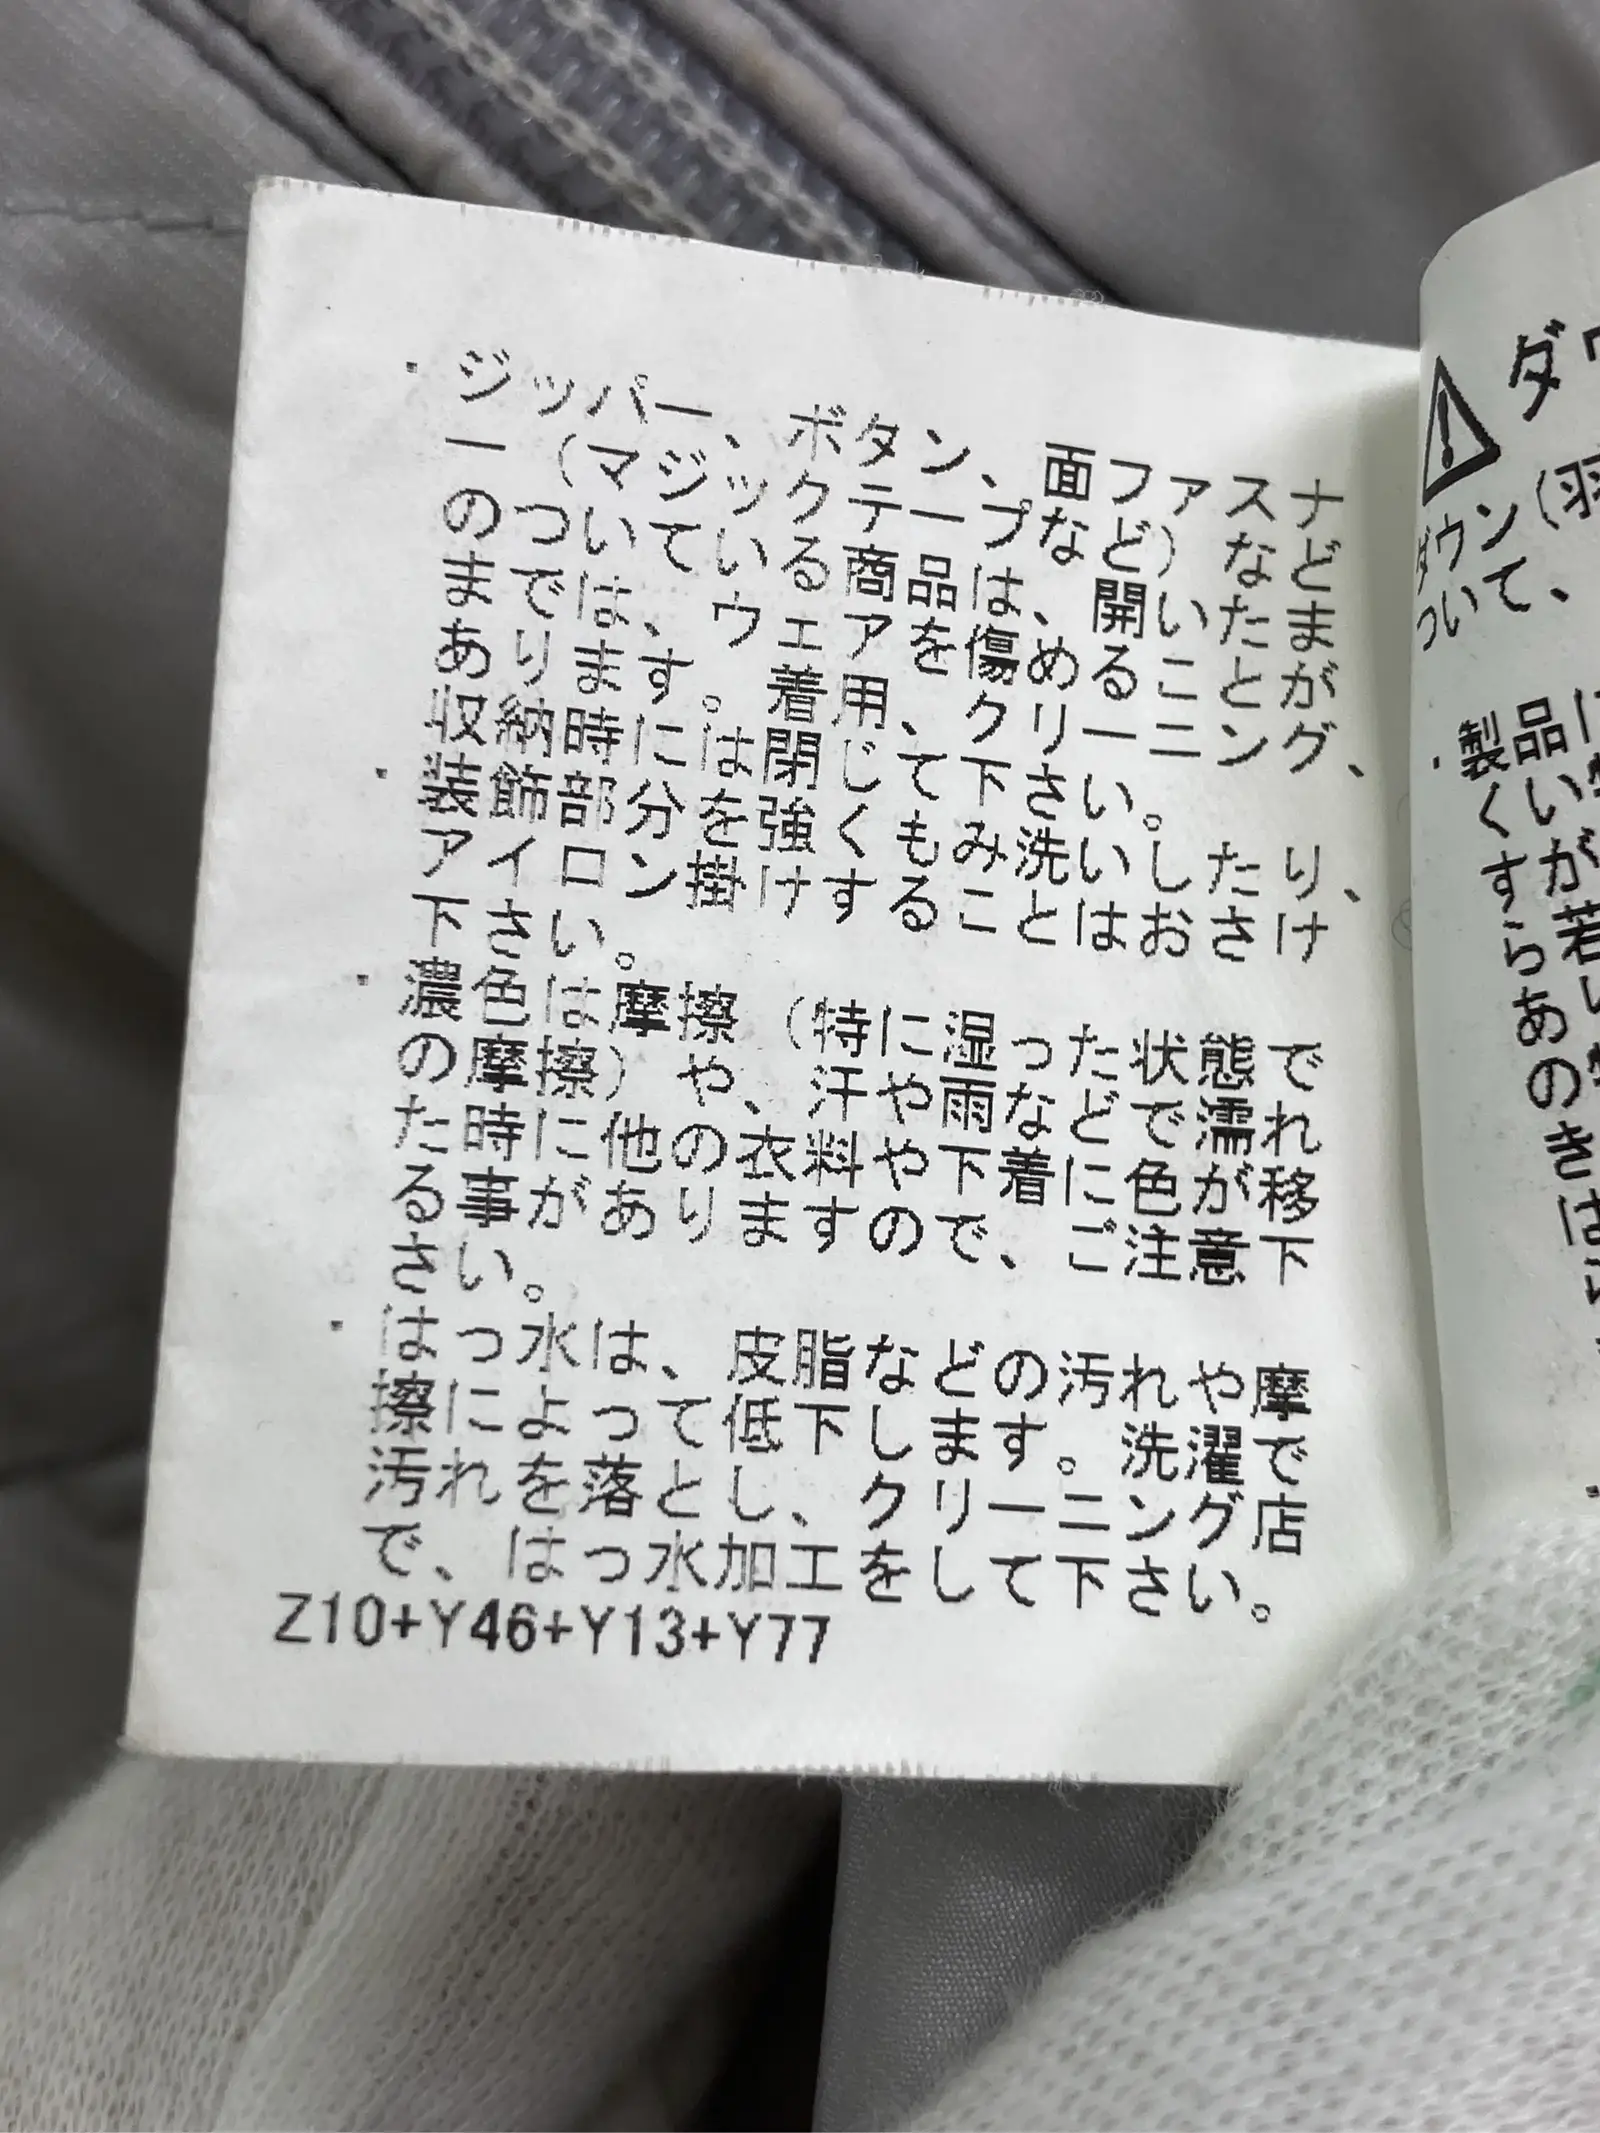 ・ジッパー、ボタン、面ファスナ
ー(マジックテープなど)など
のついている商品は、開いたま
までは、ウェアを傷めることが
あります。着用、クリーニング、
収納時には閉じて下さい。
・装飾部分を強くもみ洗いしたり、
アイロン掛けすることはおさけ
下さい。
・濃色は摩擦(特に湿った状態で
の摩擦)や、汗や雨などで濡れ
た時に他の衣料や下着に色が移
る事がありますので、ご注意下
さい。
・はっ水は、皮脂などの汚れや摩
擦によって低下します。洗濯で
汚れを落とし、クリーニング店
で、はっ水加工をして下さい。
Z10+Y46+Y13+Y77
ダ
(羽
ダウン
ついて、
・製品は
くいが
す若い
らあ
のき